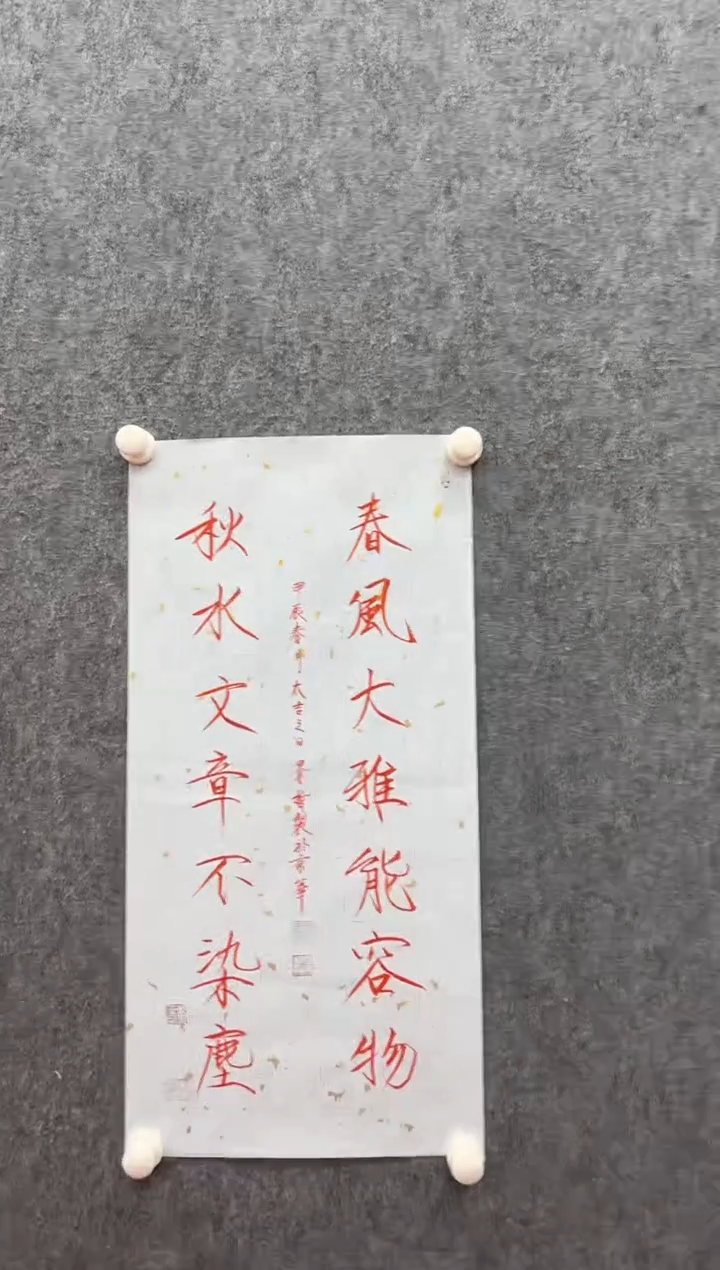 春風大雅能容物
甲辰春月大吉之日
秋水文章不染塵